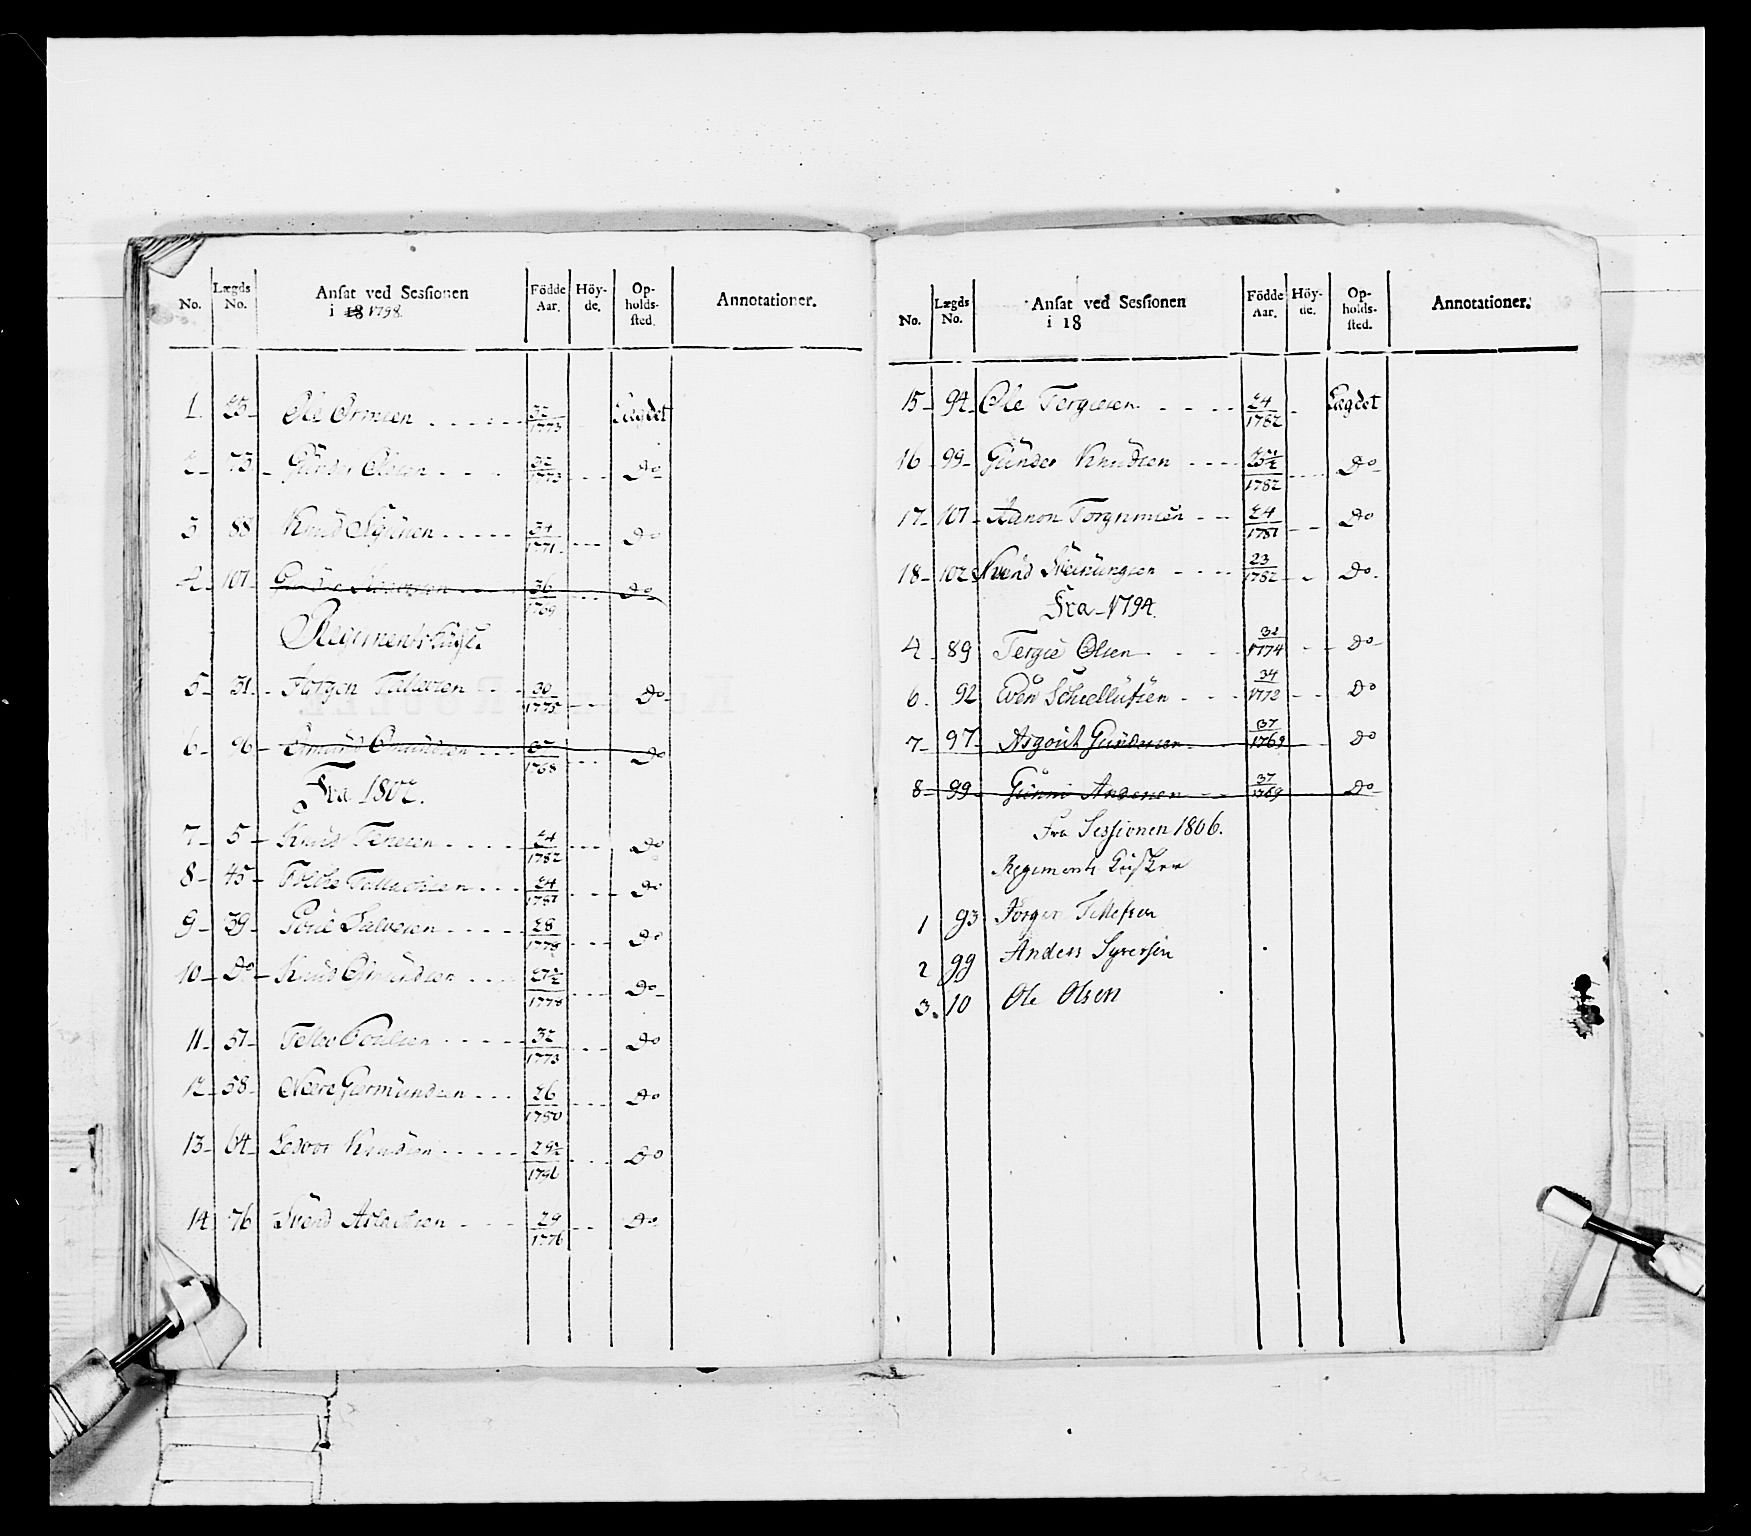 No. Lægds No. Ansat ved Sessionen i 18 1798. Födde Aar. Höyde. Opholdssted. Annotationer.
1. 25 Ole Ormsen 32/1773 Lægdet
2 73 Gunder Olsen 32/1773 Do
3 88 Knud 34/1771 Do
4 107 36/1769 Do
Regiments
5 31 Jörgen Tallevsen 30/1775 Do
6 96 Omund Omundsen 1768 Do
Fra 1802.
7 5 Knud Tersesen 24/1782 Do
8 45 24/1781 Do
9 39 28/1778 Do
10 Do Knud Omundsen 27½/1778 Do
11 57 32/1773 Do
12 58 Giermundsen 26/1780 Do
13 64 Knudsen 29½/1796 Do
14 76 Svend Aslachsen 29/1776 Do
No. Lægds No. Ansat ved Sessionen i 18 Födde Aar. Höyde. Opholdssted. Annotationer.
15 94 Ole Tergiesen 24/1782 Lægdet
16 99 Gunder Knudsen 1782 Do
17 107 Aanon Torgrimsen 24/1781 Do
18 102 Svend Sveinungsen 23/1782 Do
Fra 1794.
4 89 Tergie Olsen 32/1774 Do
6 92 Even 34/1772 Do
7 97 Asgout Gundersen 37/1769 Do
8 99 Gunni Andersen 37/1769 Do
Fra Sessionen 1806.
Regiments Kudsker
1 93 Jörgen Tellefsen
2 99 Anders Syversen
3. 10 Ole Olsen